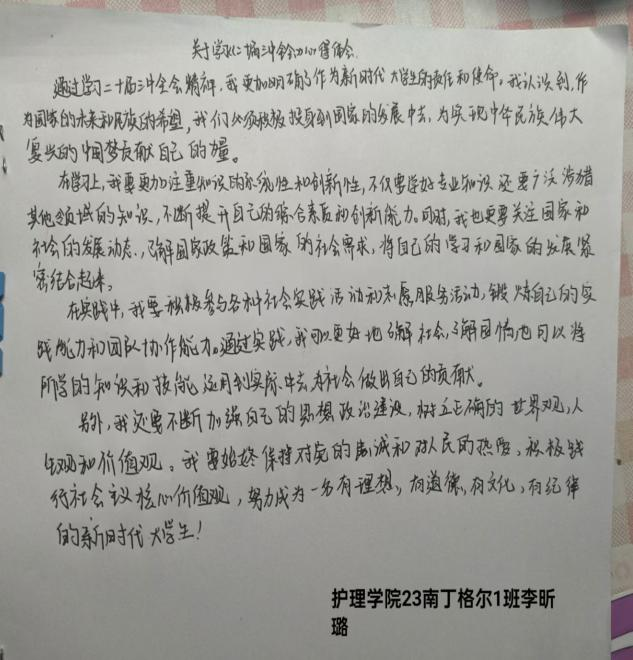 关于学习二十届三中全会心得体会
通过学习二十届三中全会精神,我更加明确了作为新时代大学生的责任和使命。我认识到,作
为国家的未来和民族的希望,我们必须积极投身到国家的发展中去,为实现中华民族伟大
复兴的中国梦贡献自己的力量。
在学习上,我要更加注重知识的系统性和创新性,不仅要学好专业知识还要广泛涉猎
其他领域的知识,不断提升自己的综合素质和创新能力。同时,我也更要关注国家和
社会的发展动态,了解国家政策和国家的社会需求,将自己的学习和国家的发展紧
密结合起来。
在实践中,我要积极参与各种社会实践活动和志愿服务活动,锻炼自己的实
践能力和团队协作能力。通过实践,我可以更好地了解社会,了解国情,也可以将
所学的知识和技能运用到实际中去,为社会做出自己的贡献。
另外,我还要不断加强自己的思想政治建设,树立正确的世界观,人
生观和价值观。我要始终保持对党的忠诚和对人民的热爱,积极践
行社会主义核心价值观,努力成为一名有理想,有道德,有文化,有纪律
的新时代大学生!
护理学院23南丁格尔1班李昕
璐